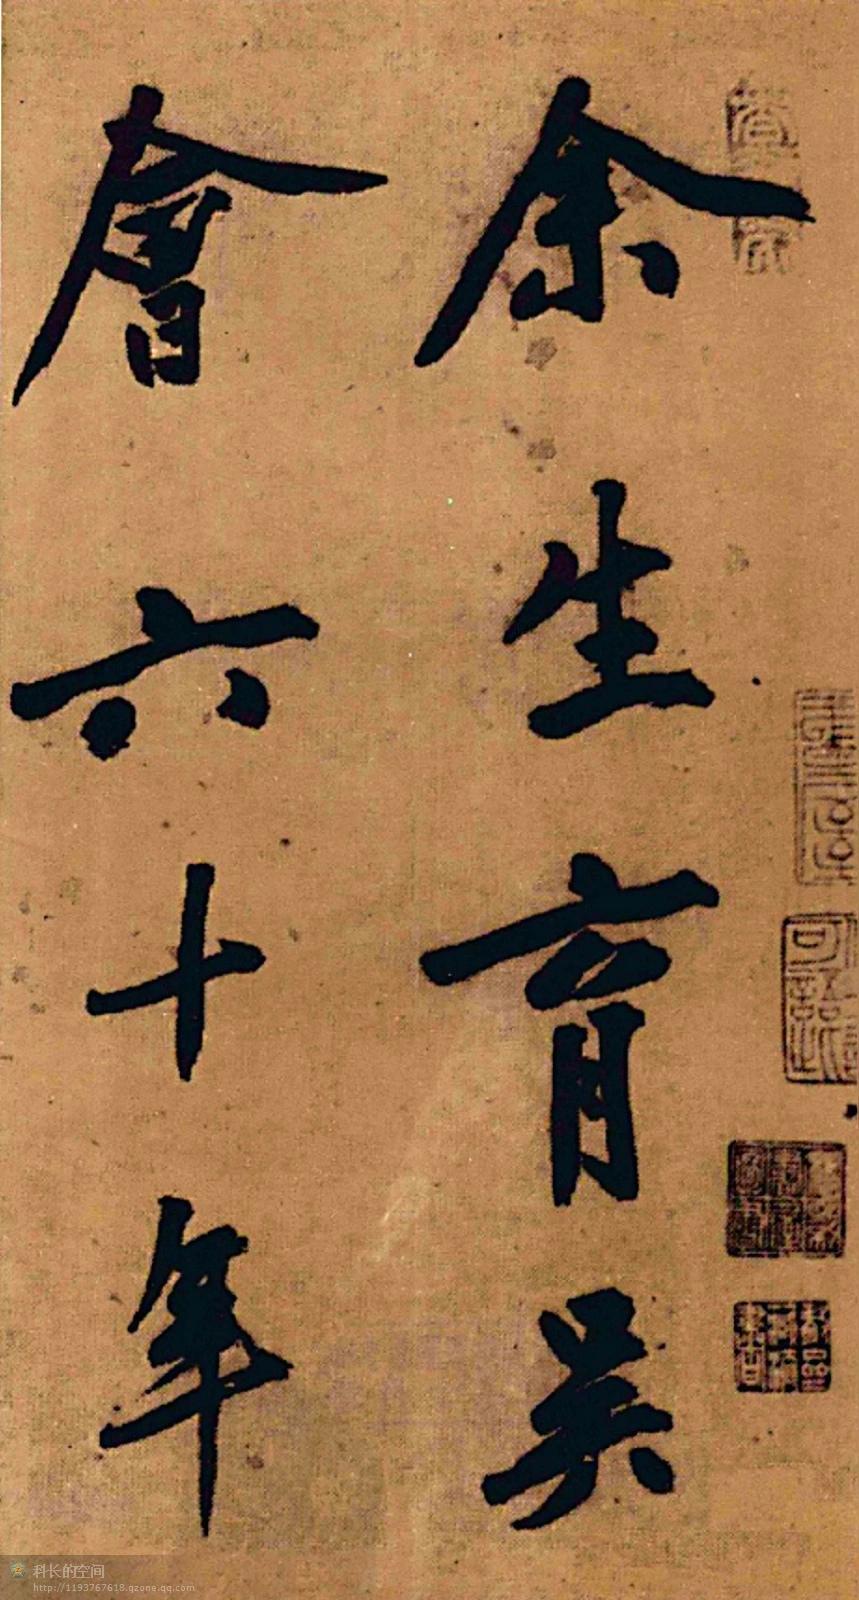 余生育吴
會六十年
科长的空间
http://1193767618.qzone.qq.com